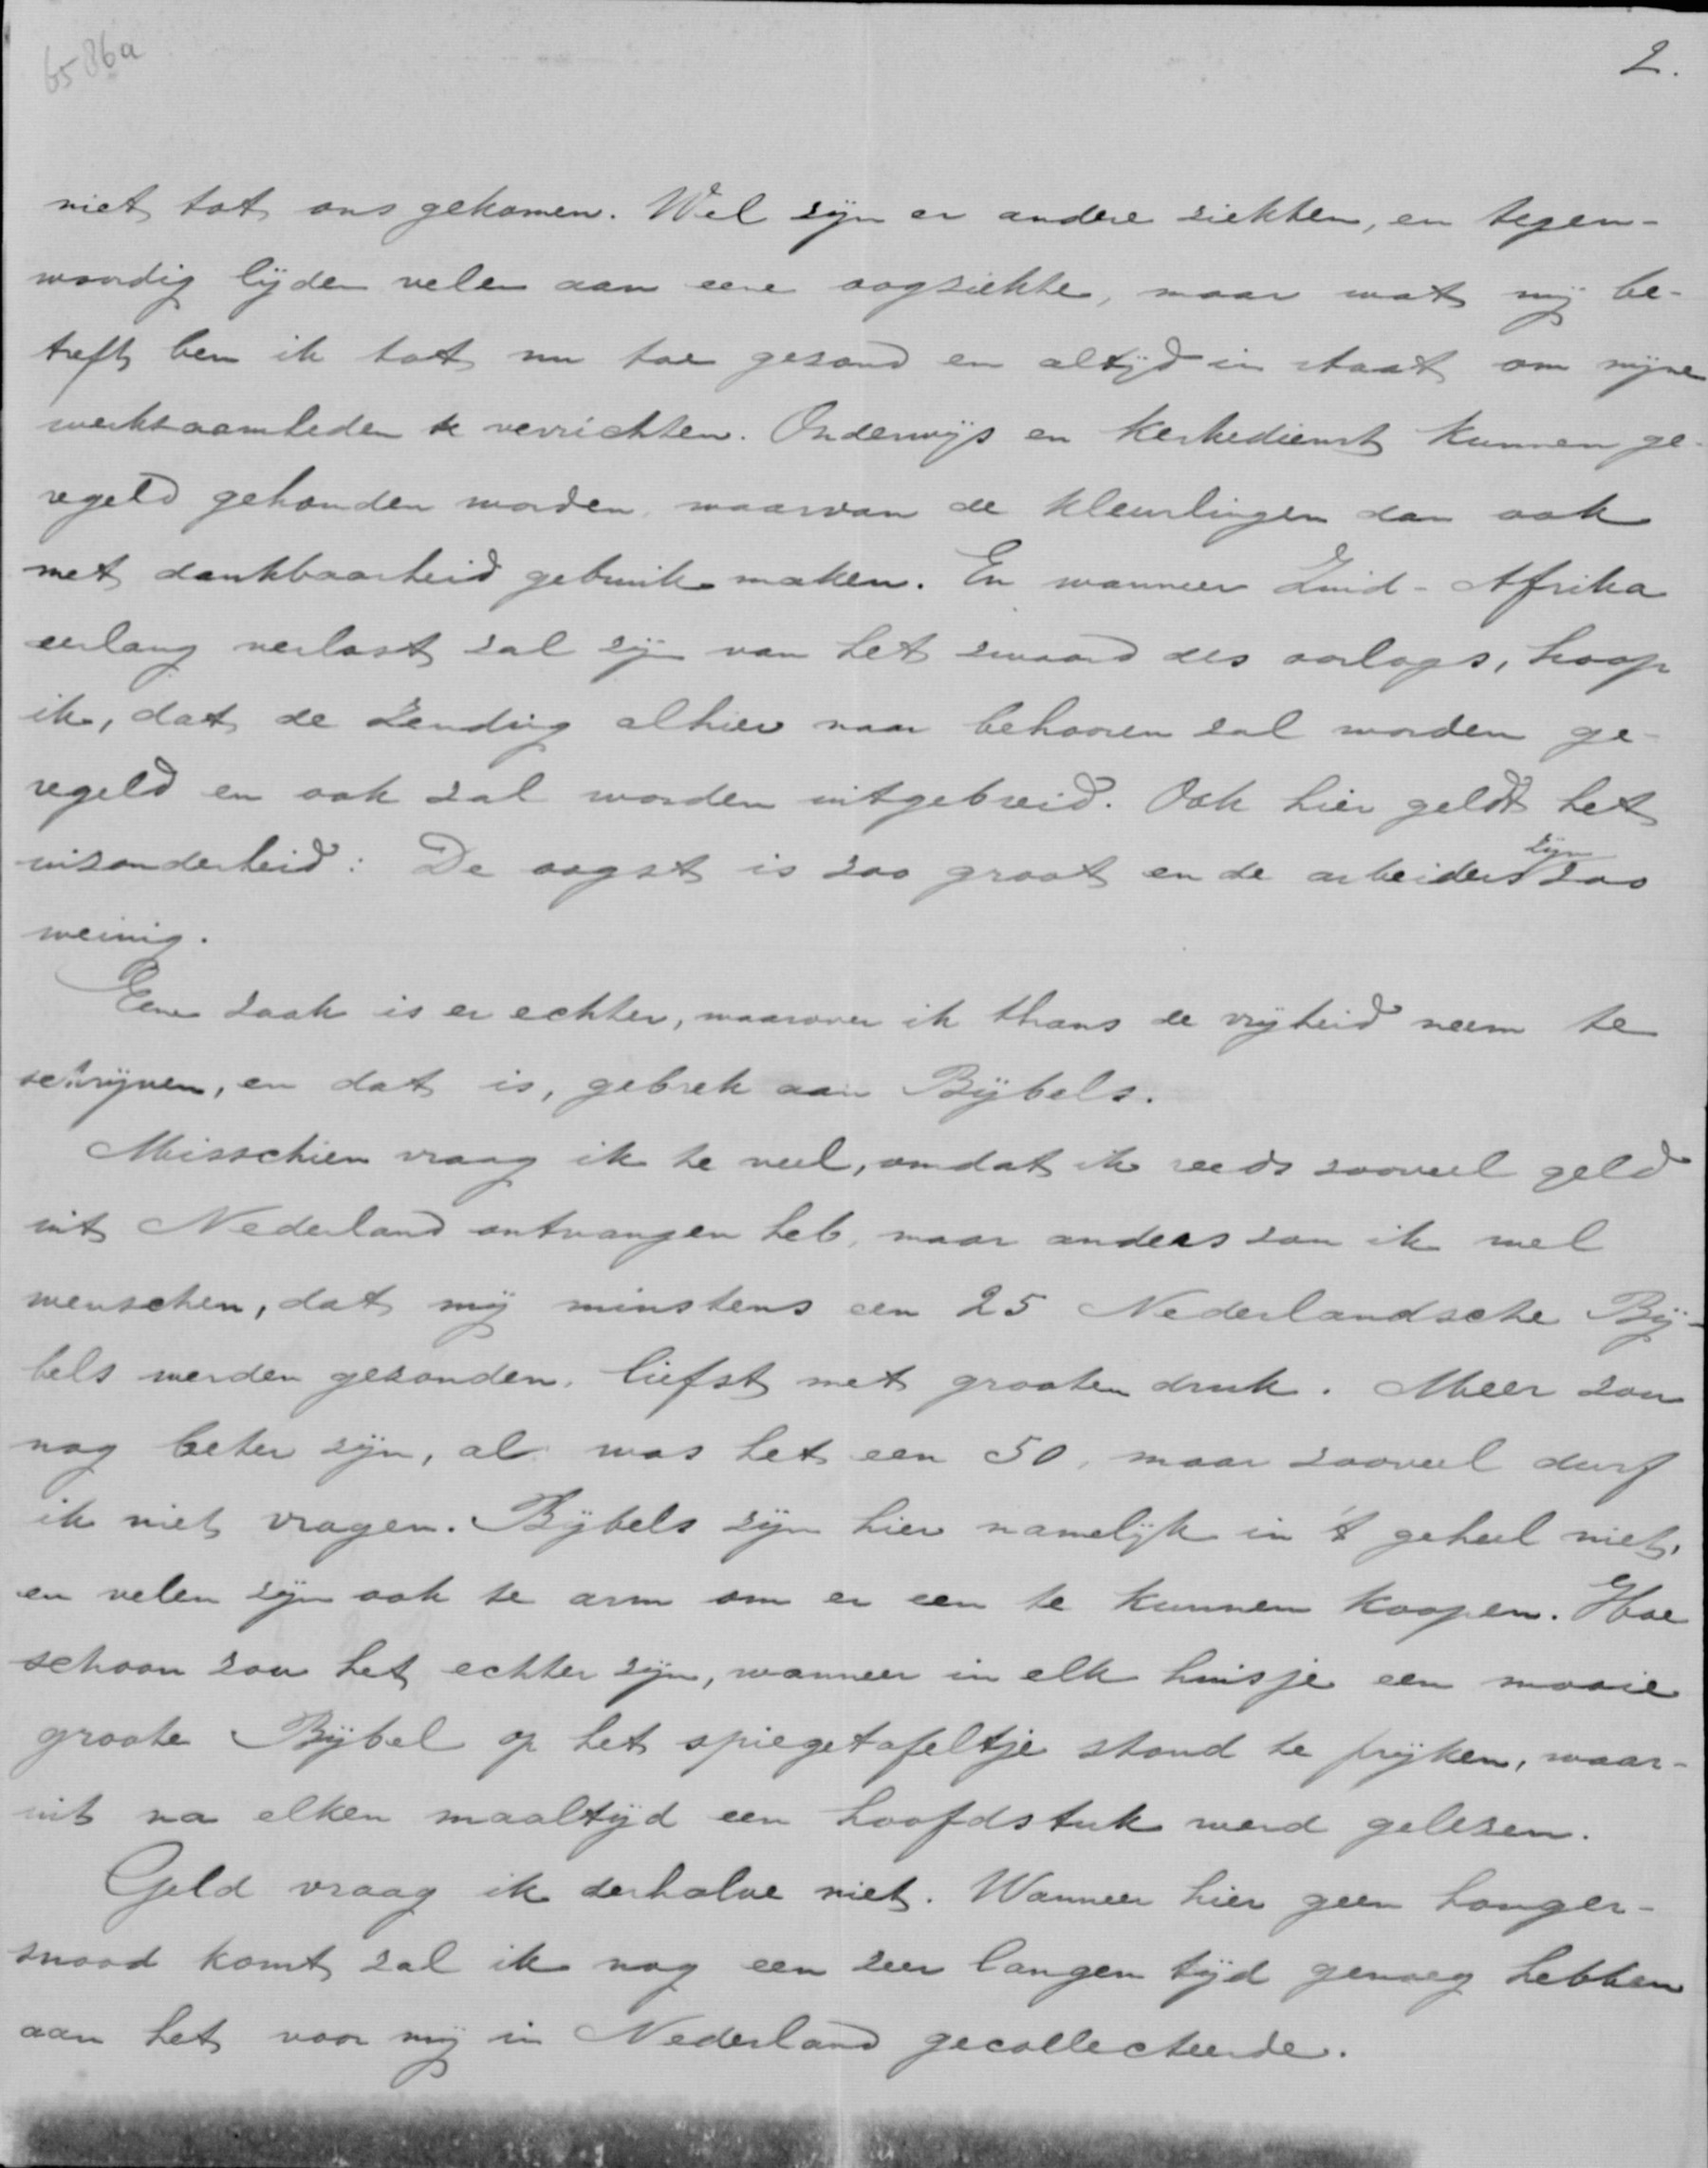 6586a
2.
niet tot ons gekomen. Wel zijn er andere ziekten, en tegen-
woordig lijden velen aan eene oogziekte, maar wat mij be-
treft ben ik tot nu toe gezond en altijd in staat om mijne
werkzaamheden te verrichten. Onderwijs en Kerkedienst kunnen ge-
regeld gehouden worden, waarvan de kleurlingen dan ook
met dankbaarheid gebruik maken. En wanneer Zuid-Afrika
eerlang verlost zal zijn van het zwaard des oorlogs, hoop
ik, dat de Zending alhier naar behooren zal worden ge-
regeld en ook zal worden uitgebreid. Ook hier geldt het
inzonderheid: De oogst is zoo groot en de arbeiders zijn zoo
weinig.
Eene zaak is er echter, waarover ik thans de vrijheid neem te
schrijven, en dat is, gebrek aan Bijbels.
Misschien vraag ik te veel, omdat ik reeds zooveel geld
uit Nederland ontvangen heb, maar anders zou ik wel
wenschen, dat mij minstens een 25 Nederlandsche Bij-
bels werden gezonden, liefst met grooten druk. Meer zou
nog beter zijn, al was het een 50, maar zooveel durf
ik niet vragen. Bijbels zijn hier namelijk in 't geheel niet,
en velen zijn ook te arm om er een te kunnen koopen. Hoe
schoon zou het echter zijn, wanneer in elk huisje een mooie
groote Bijbel op het spiegetafeltje stond te prijken, waar-
uit na elken maaltijd een hoofdstuk werd gelezen.
Geld vraag ik derhalve niet. Wanneer hier geen honger-
snood komt zal ik nog een zeer langen tijd genoeg hebben
aan het voor mij in Nederland gecollecteerde.